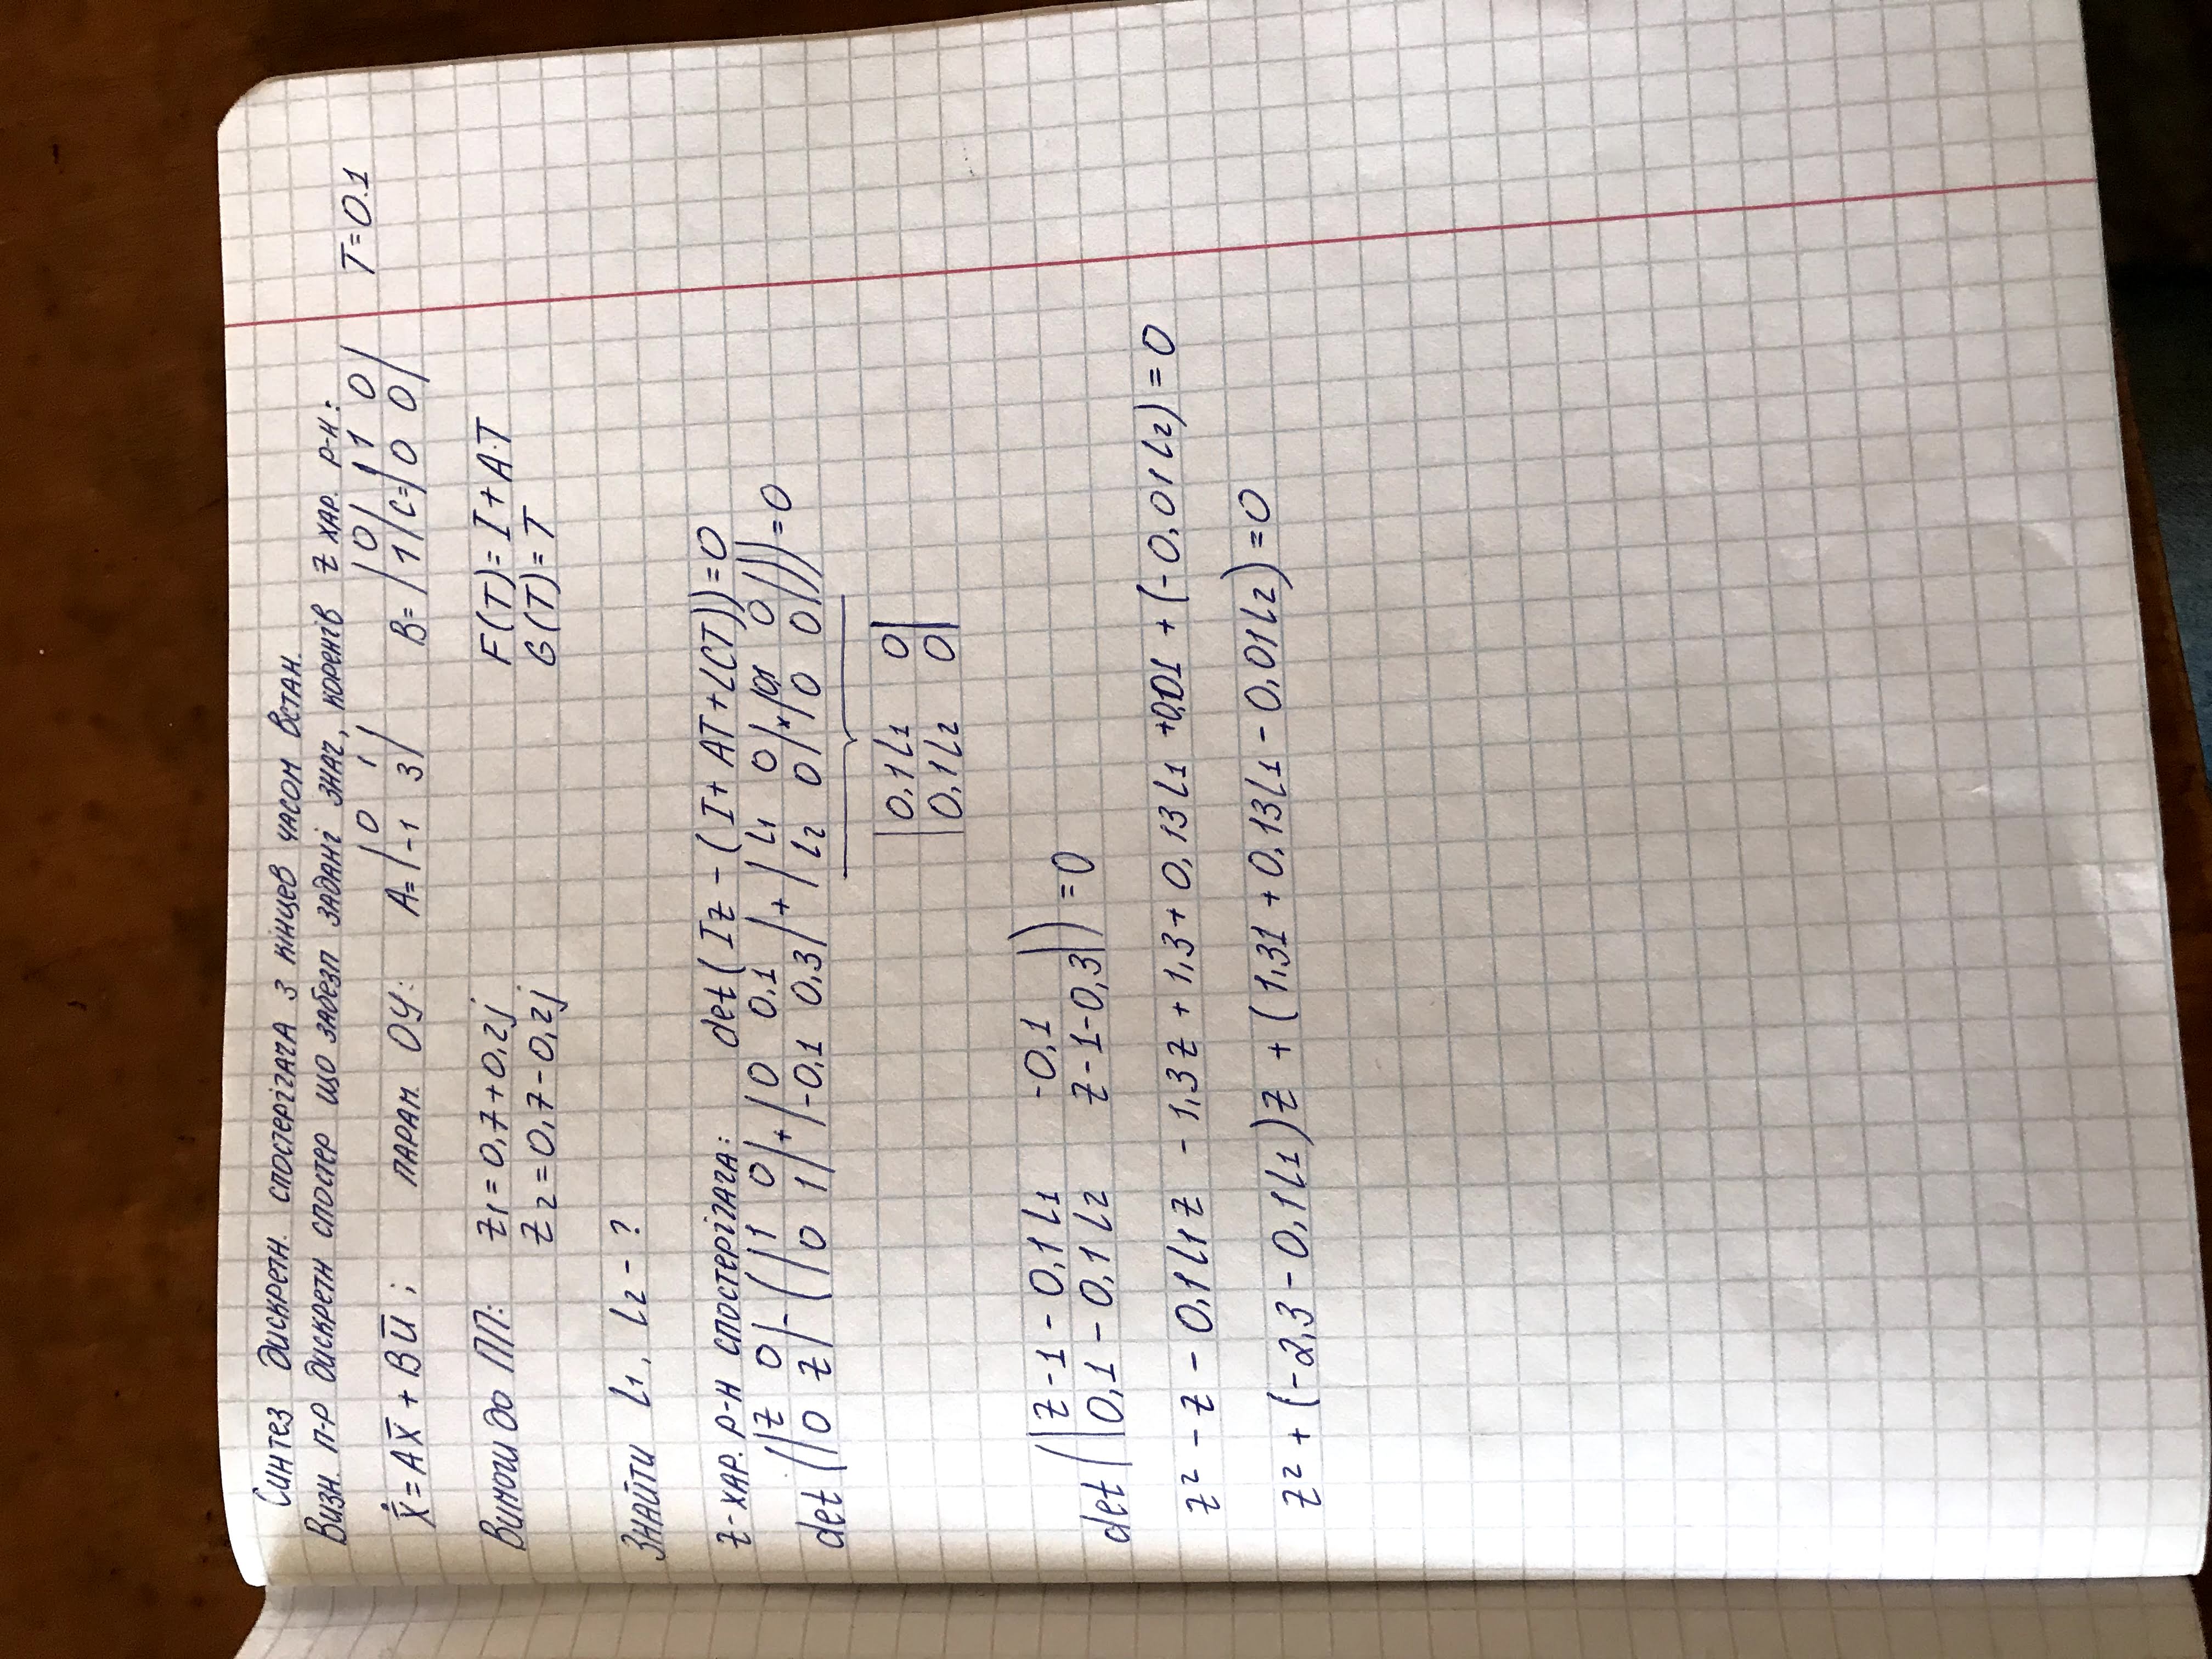 Синтез дискретн. спостерігача з кінцев часом встан.
Визн. п-р дискретн спостер що забезп задані знач, коренів z хар. р-н:
ẋ̄ = Ax̄ + Bū ; парам. ОУ: A= |0 1| B= |0| C= |1 0| T=0.1
|-1 3| |1| |0 0|
Вимоги до ПП: z1 = 0,7+0,2j F(T)= I+A·T
z2 = 0,7-0,2j G(T)= T
Знайти l1, l2 - ?
z-хар. р-н спостерігача: det(Iz - (I + AT + LCT))=0
det(|z 0| - (|1 0| + |0 0.1| + |l1 0| * |0.1 0|))=0
|0 z| |0 1| |-0.1 0,3| |l2 0| |0 0|
|0,1l1 0|
|0,1l2 0|
det(|z-1-0,1l1 -0,1|)=0
|0,1-0,1l2 z-1-0,3|
z² - z - 0,1l1z - 1,3z + 1,3 + 0,13l1 +0,01 + (-0,01l2) = 0
z² + (-2,3-0,1l1)z + (1,31 + 0,13l1 - 0,01l2)=0